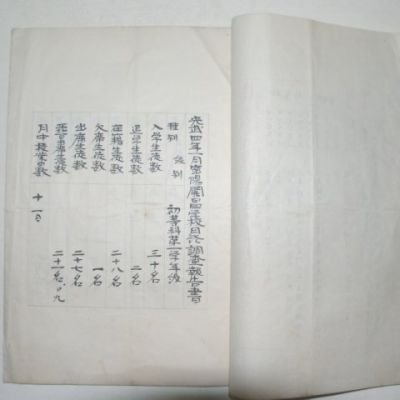 光武四年一月密陽開昌學校月終調查報告書
種別 級別 初等科第一學年級
入學生徒數 三十名
退學生徒數 二名
在籍生徒數 二十八名
欠席生徒數 一名
出席生徒數 二十七名
生徒數 二十一名
月中授業日數 十一日